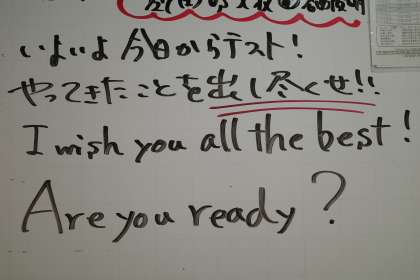 いよいよ 今日からテスト!
やってきたことを出し尽くせ!!
I wish you all the best!
Are you ready?